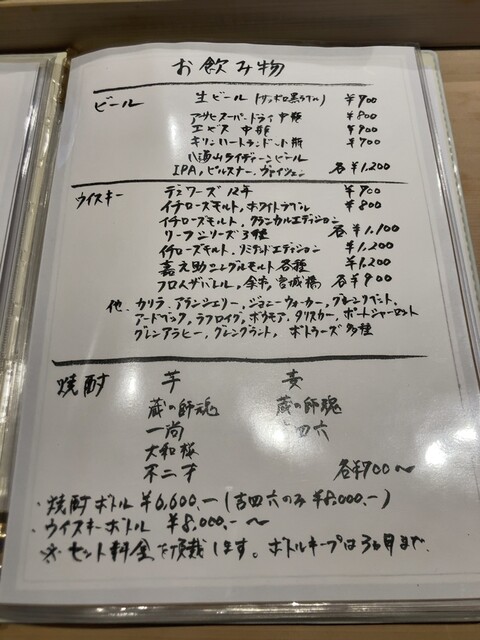 お飲み物
ビール 生ビール(サッポロ黒ラベル) ¥900
アサヒスーパードライ 中瓶 ¥800
エビス 中瓶 ¥900
キリンハートランド 小瓶 ¥700
八海山ライディーンビール
IPA, ピルスナー, ヴァイツェン 各¥1,200
ウイスキー デュワーズ 12年 ¥900
イチローズモルト, ホワイトラベル ¥800
イチローズモルト, クラシカルエディション
リーフシリーズ3種 各¥1,100
イチローズモルト, リミテッドエディション ¥1,200
嘉之助シングルモルト各種 ¥1,200
フロムザバレル, 余市, 宮城峡 各¥900
他, カリラ, アランシェリー, ジョニーウォーカー, グレンリベット,
アードベッグ, ラフロイグ, ボウモア, タリスカー, ポートシャーロット
グレンアラヒー, グレングラント, ボトラーズ多種
焼酎 芋 麦
蔵の師魂 蔵の師魂
一尚 吉四六
大和桜
不二才 各¥700〜
・焼酎ボトル ¥6,600.-(吉四六のみ ¥8,000.-)
・ウイスキーボトル ¥8,000.-〜
※ セット料金を頂戴します。ボトルキープは3ヵ月まで.